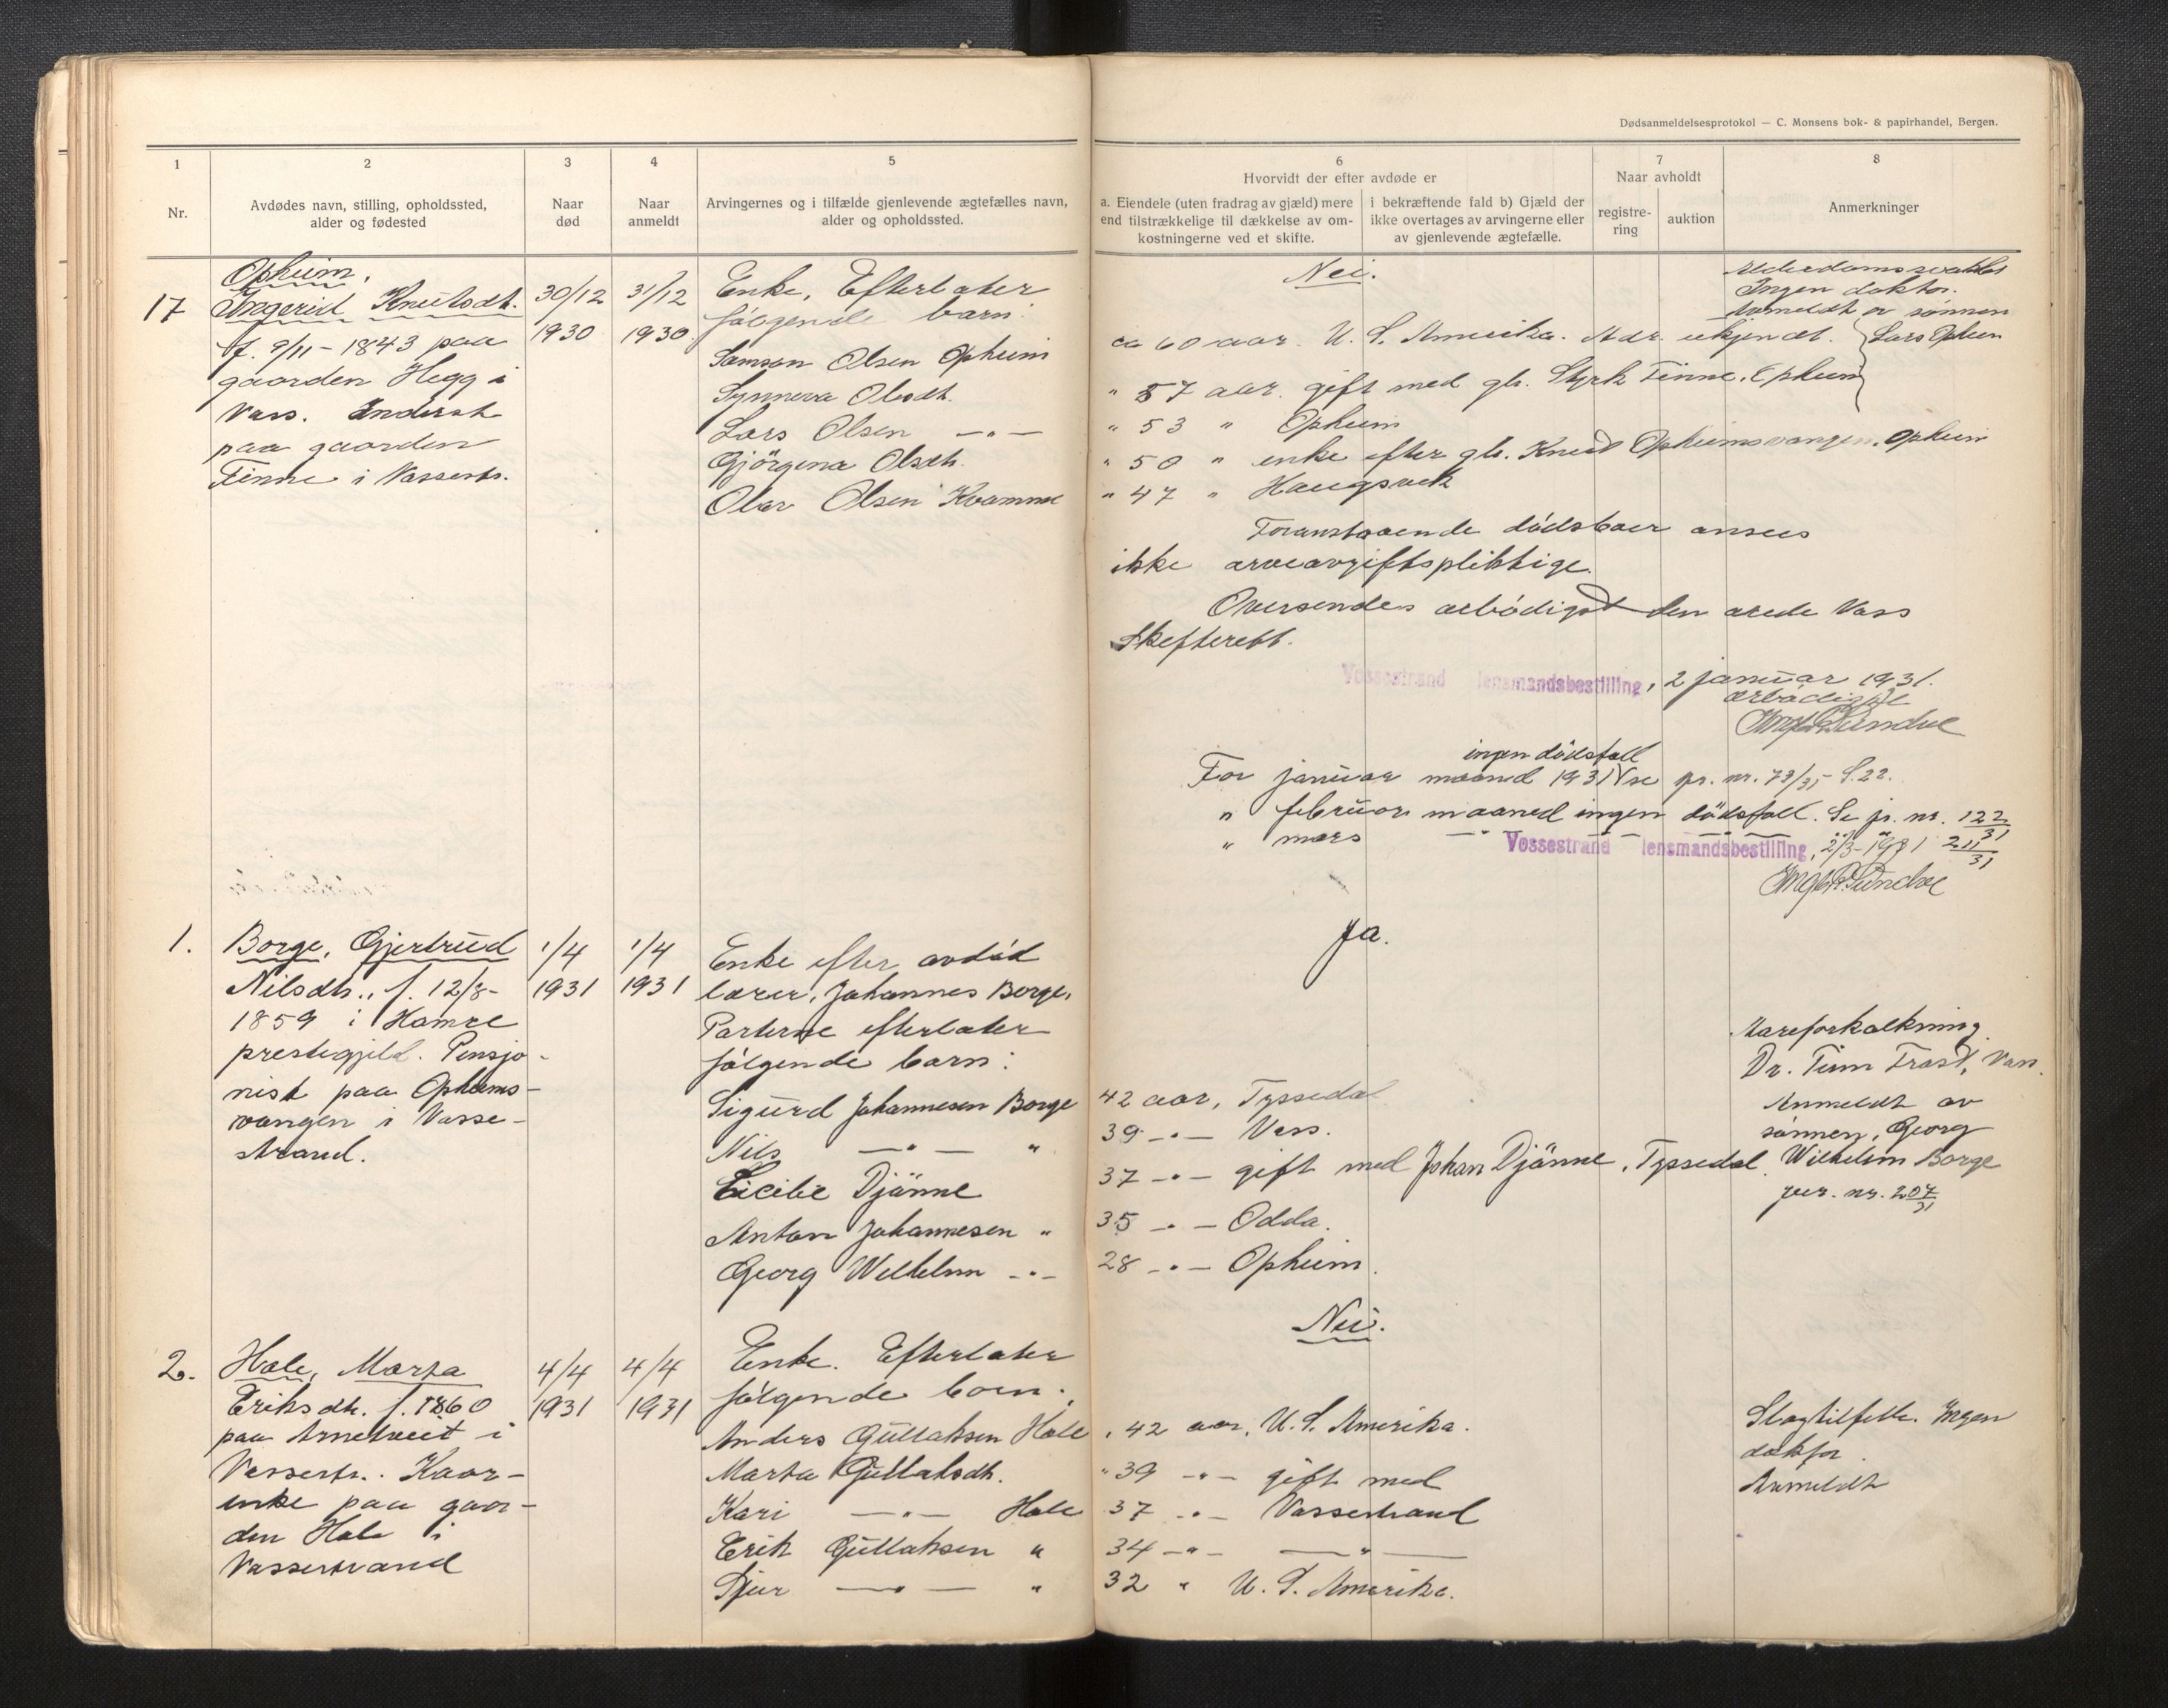 Dødsanmeldelsesprotokol — C. Monsens bok- & papirhandel, Bergen.
1 2 3 4 5 6 7 8
Nr.
Avdødes navn, stilling, opholdssted,
alder og fødested
Naar
død
Naar
anmeldt
Arvingernes og i tilfælde gjenlevende ægtefælles navn,
alder og opholdssted.
Hvorvidt der efter avdøde er
a. Eiendele (uten fradrag av gjæld) mere
end tilstrækkelige til dækkelse av om-
kostningerne ved et skifte.
i bekræftende fald b) Gjæld der
ikke overtages av arvingerne eller
av gjenlevende ægtefælle.
Naar avholdt
registre-
ring
auktion
Anmerkninger
17
Opheim,
Ingerid Knutsdt.
f. 9/11 - 1843 paa
gaarden Hegg i
Voss. Inderst
paa gaarden
Finne i Vossestr.
30/12
1930
31/12
1930
Enke, Efterlater
følgende barn:
Samson Olsen Opheim
Synneva Olsdt.
Lars Olsen —"—
Gjörgina Olsdt.
Olav Olsen Kvamme
Nei.
ca 60 aar. U. S. Amerika. Adr. ukjendt.
" 57 aar. gift med gb. Styrk Finne, Opheim
" 53 " Opheim
" 50 " enke efter gb. Knut Opheimsvangen, Opheim
" 47 " Haugsvik
Alderdomssvakhet
Ingen doktor.
Anmeldt av sønnen
Lars Opheim
Foranstaaende dødsboer ansees
ikke arveavgiftspliktige.
Oversendes ærbödigst den ærede Voss
Skifterett.
Vossestrand lensmandsbestilling, 2 januar 1931.
ærbödigst
For januar maaned 1931 ingen dødsfall se pr. nr. 73/31 - S. 22.
" februar maaned ingen dødsfall. Se jr. nr. 122/31
" mars —"— —"— 211/31
Vossestrand lensmandsbestilling, 2/3-1931
1.
Borge, Gjertrud
Nilsdt., f. 12/8-
1859 i Hamre
prestegjeld. Pensjo-
nist paa Opheims-
vangen i Vosse-
strand.
1/4
1931
1/4
1931
Enke efter avdød
lærer, Johannes Borge,
Parterne efterlater
følgende barn:
Sigurd Johannesen Borge
Nils —"— "
Cicilie Djönne
Anton Johannesen "
Georg Wilhelm —"—
Ja.
42 aar, Tyssedal
39 —"— Voss.
37 —"— gift med Johan Djönne, Tyssedal
35 —"— Odda.
28 —"— Opheim.
Aareforkalkning
Dr. Finn Frost, Voss.
Anmeldt av
sønnen, Georg
Wilhelm Borge
jur. nr. 207/31
2.
Hole, Marta
Eriksdt. f. 1860
paa Arnetveit i
Vossestr. Kaar-
enke paa gaar-
den Hole i
Vossestrand
4/4
1931
4/4
1931
Enke. Efterlater
følgende born:
Anders Gullaksen Hole
Marta Gullaksdt.
Kari —"— Hole
Erik Gullaksen "
Sjur —"— "
Nei.
" 42 aar, U. S. Amerika.
" 39 —"— gift med
37 —"— Vossestrand
34 —"— —"—
32 " U. S. Amerika.
Slagtilfelle. Ingen
doktor.
Anmeldt